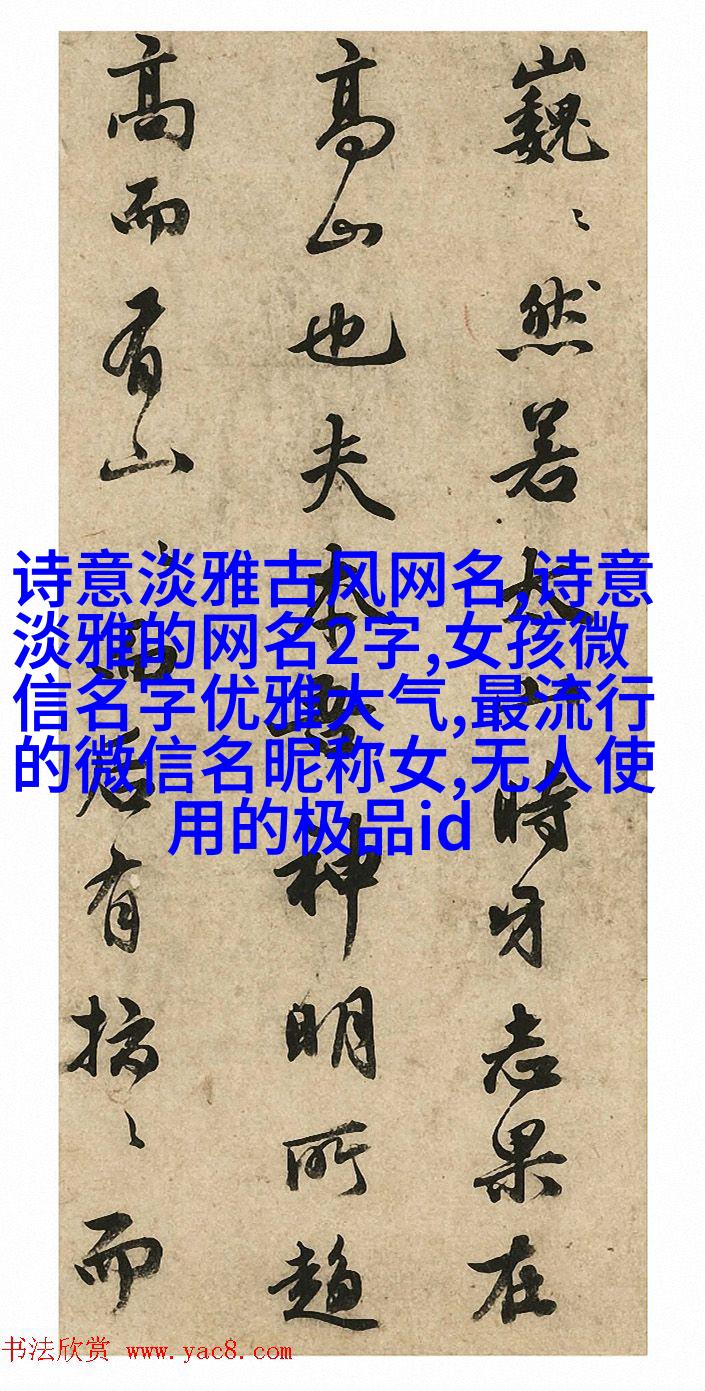 诗意淡雅古风网名,诗意
淡雅的网名2字,女孩微
信名字优雅大气,最流行
的微信名昵称女,无人使
用的极品id
巍〻然若太時乎志果在
高山也夫本神明所趨
高而有山〻而后有指〻而
书法欣赏 www.yac8.com